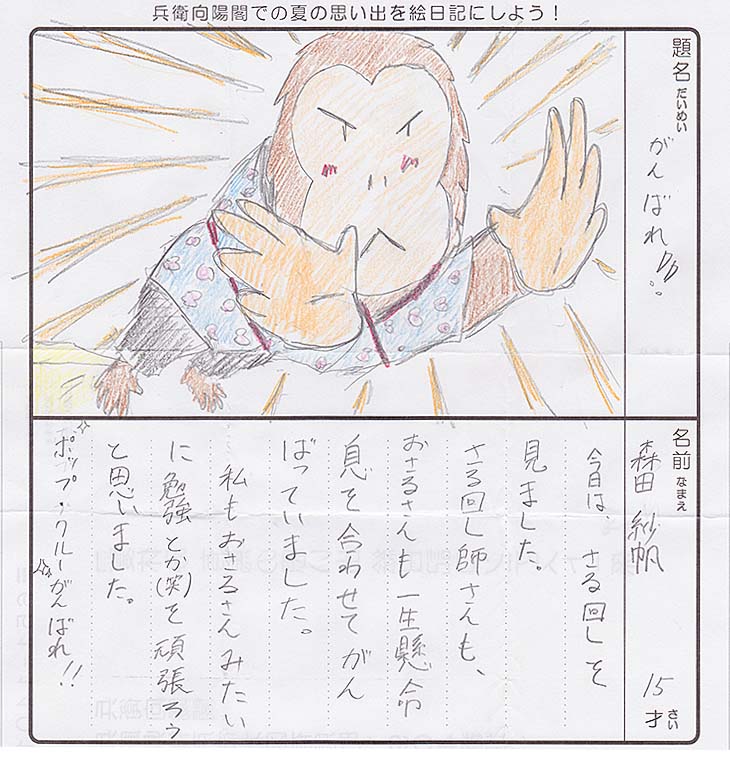 兵衛向陽閣での夏の思い出を絵日記にしよう！
題名 だいめい
がんばれ
名前 なまえ
森田 紗帆
15才 さい
今日は さる回しを
見ました。
さる回し師さんも、
おさるさんも一生懸命
息を合わせてがん
ばっていました。
私もおさるさんみたい
に勉強とか(笑)を頑張ろう
と思いました。
ポップ・クルーがんばれ!!